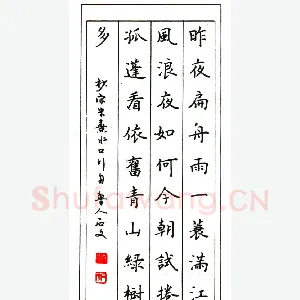 昨夜扁舟雨一蓑滿江
風浪夜如何今朝試捲
孤蓬看依舊青山綠樹
多
抄宋朱熹水口行舟 魯人
Shufawang.CN